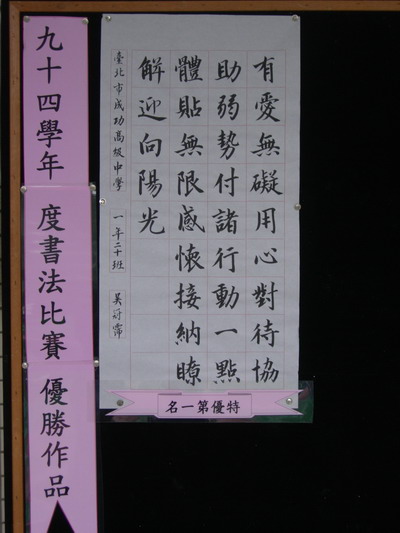 九十四學年度書法比賽優勝作品
有愛無礙用心對待協
助弱勢付諸行動一點
體貼無限感懷接納瞭
解迎向陽光
臺北市成功高級中學 一年二十班 吳
特優第一名